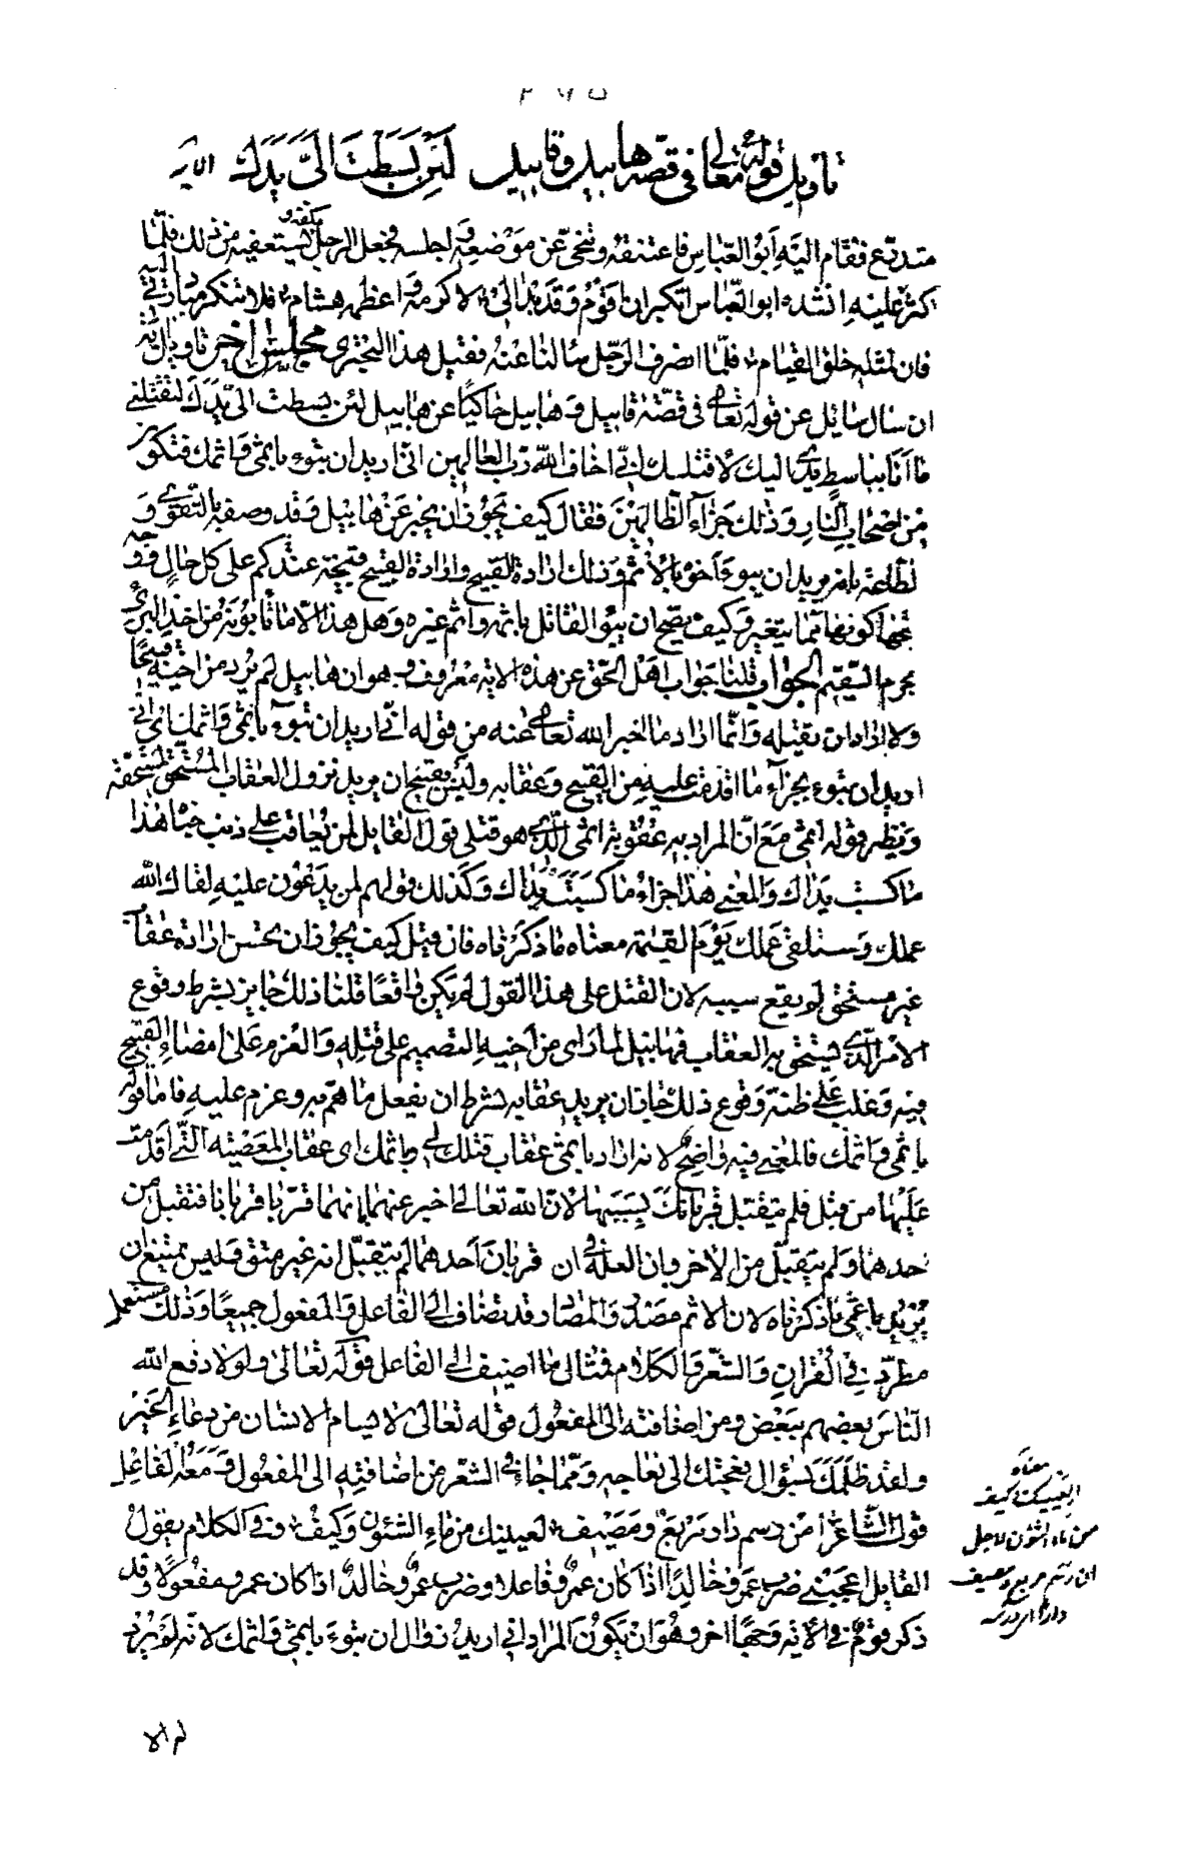 ٢٦٥
تأويل قوله تعالى في قصة هابيل وقابيل لَئِنْ بَسَطْتَ اِلَيَّ يَدَكَ الاية
متدرع فقام اليه ابو العباس فاعتنقه وتنحى عن موضعه واجلسه فجعل الرجل يكفه و يستعفيه من ذلك فلما
اكثر عليه انشده ابو العباس اتنكر ان اقوم وقد بدا لي لاكرمه واعظمه هشام فلا تنكر مبادرتي اليه
فان لمثله خلق القيام فلما انصرف الرجل سالنا عنه فقيل هذا البحتري مجلس اخر تاويل اية
ان سال سائل عن قوله تعالى في قصة قابيل وهابيل حاكيا عن هابيل لئن بسطت الي يدك لتقتلني
ما انا بباسط يدي اليك لاقتلك اني اخاف الله رب العالمين اني اريد ان تبوء باثمي واثمك فتكون
من اصحاب النار وذلك جزاء الظالمين فقال كيف يجوز ان يخبر عن هابيل وقد وصفه بالتقوى و
لطاعة بانه يريد ان يبوء اخوه بالاثم وذلك ارادة القبيح وارادة القبيح قبيحة عندكم على كل حال ووجه
قبحها كونها مما يتغير وكيف يصح ان يبوء القاتل باثمه واثم غيره وهل هذا الا ما تابونه من اخذ البرئ
بجرم السقيم الجواب قلنا جواب اهل الحق عن هذه الاية معروف وهو ان هابيل لم يرد من اخيه قبيحا
ولا اراد ان يقتله وانما اراد ما اخبر الله تعالى عنه من قوله اني اريد ان تبوء باثمي واثمك اي اني
اريد ان تبوء بجزاء ما اقدمت عليه من القبيح وعقابه وليس بقبيح ان يريد نزول العقاب المستحق لمستحقه
ونظير قوله اثمي مع ان المراد به عقوبة اثمي الذي هو قتلي قول القايل لمن يعاقب على ذنب جناه هذا
ما كسبت يداك والمعنى هذا جزاء ما كسبت يداك وكذلك قولهم لمن يدعون عليه لقاك الله
عملك وستلقى عملك يوم القيمة معناه ما ذكرناه فان قيل كيف يجوز ان يحسن ارادة عقاب
غير مستحق لم يقع سببه لان القتل على هذا القول لم يكن واقعا قلنا ذلك جايز بشرط وقوع
الامر الذي يستحق به العقاب فهابيل لما راى من اخيه التصميم على قتله والعزم على امضاء القبيح
فيه وغلب على ظنه وقوع ذلك جاز ان يريد عقابه بشرط ان يفعل ما هم به وعزم عليه فاما قوله
باثمي واثمك فالمعنى فيه واضح لانه اراد باثمي عقاب قتلك لي وباثمك اي عقاب المعصية التي اقدمت
عليها من قبل فلم يتقبل قربانك بسببها لان الله تعالى اخبر عنهما بانهما قربا قربانا فتقبل من
احدهما ولم يتقبل من الاخر وان العلة في ان قربان احدهما لم يتقبل انه غير متق وليس يمتنع ان
يريد باثمي ما ذكرناه لان الاثم مصدر والمصادر قد تضاف الى الفاعل والمفعول جميعا وذلك مستعمل
مطرد في القران والشعر والكلام فمثال ما اضيف الى الفاعل قوله تعالى ولولا دفع الله
الناس بعضهم ببعض ومن اضافته الى المفعول قوله تعالى لا يسام الانسان من دعاء الخير
ولقد ظلمك بسؤال نعجتك الى نعاجه ومما جاء في الشعر من اضافته الى المفعول ومعه الفاعل
قول الشاعر امن رسم دار مربع ومصيف لعينيك من ماء الشئون وكيف وفي الكلام يقول
القايل اعجبني ضرب عمرو خالدا اذا كان عمرو فاعلا وضرب عمرو خالد اذا كان عمرو مفعولا وقد
ذكر قوم في الاية وجها اخر وهو ان يكون المراد اني اريد زوال ان تبوء باثمي واثمك لانه لم يرد
معناه
العينيك وكيف
من ماء الشئون لاجل
ان رسم مربع ومصيف
لم الا